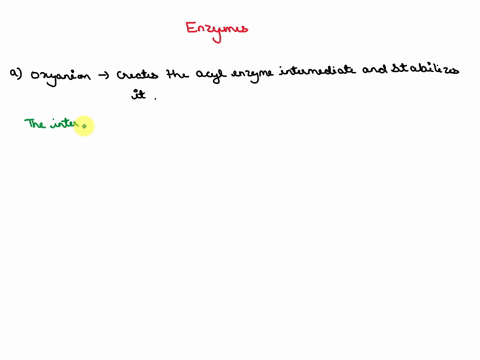 Enzymes
a) Oxyanion → Creates the acyl enzyme intermediate and stabilizes
it.
The inter